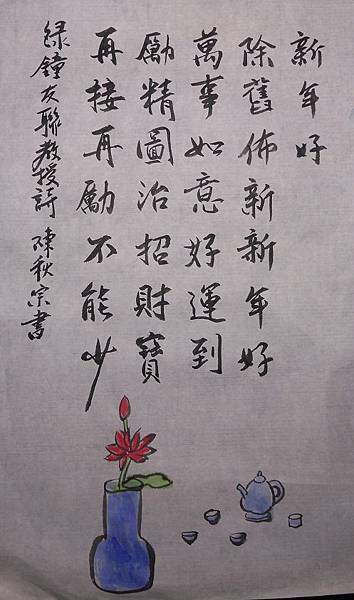 新年好
除舊佈新新年好
萬事如意好運到
勵精圖治招財寶
再接再勵不能少
綠鐘友聯教授詩 陳秋宗書